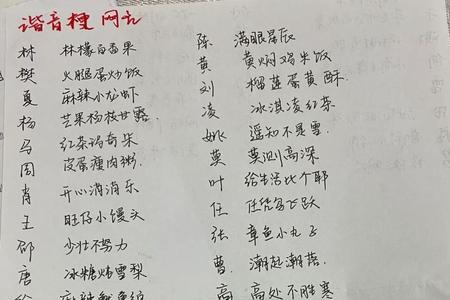 谐音梗 网名
林 林檬百香果
樊 火腿蛋炒饭
夏 麻辣小龙虾
杨 芒果杨枝甘露
马 红茶玛奇朵
周 皮蛋瘦肉粥
肖 开心消消乐
王 旺仔小馒头
邵 少壮不努力
唐 冰糖炖雪梨
陈 满眼星辰
黄 黄焖鸡米饭
刘 榴莲蛋黄酥
凌 冰淇凌红茶
姚 遥知不是雪
莫 莫测高深
叶 给生活比个耶
任 任凭鱼飞跃
张 章鱼小丸子
曹 潮起潮落
高 高处不胜寒